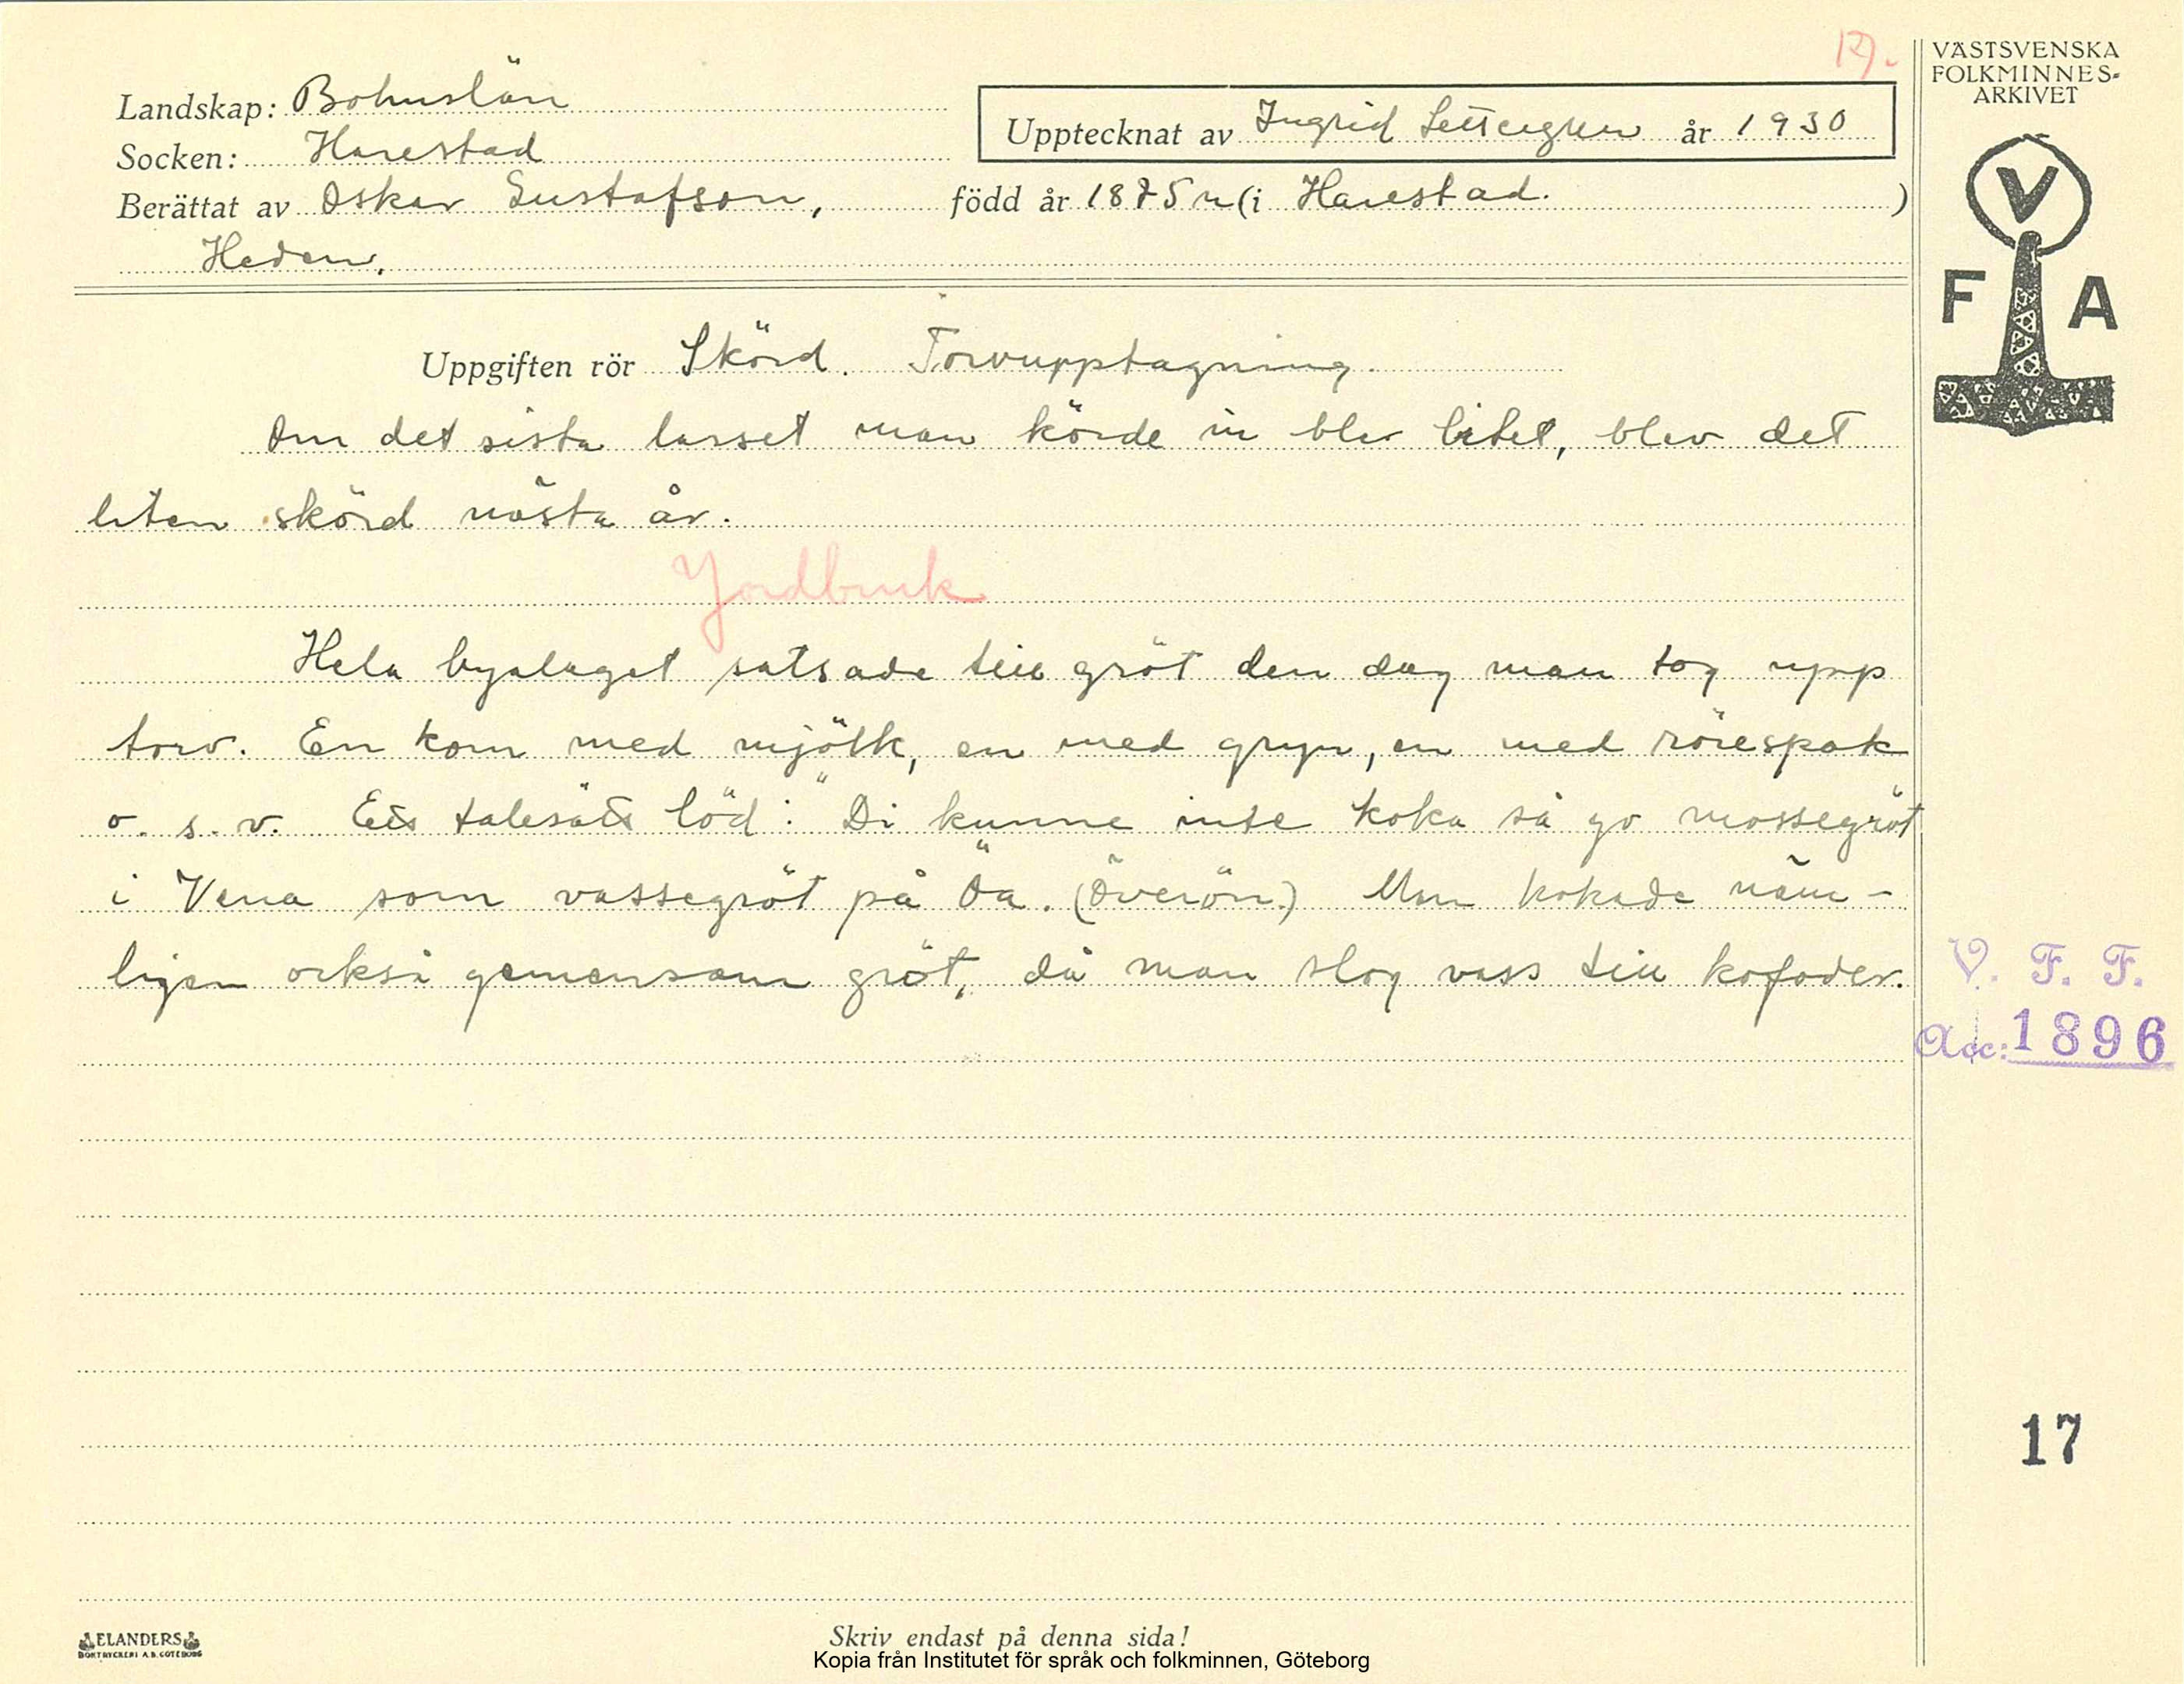 17.
VÄSTSVENSKA
FOLKMINNES-
ARKIVET
Landskap: Bohuslän
Upptecknat av Ingrid Settergren år 1930
Socken: Harestad
Berättat av Oskar Gustafson, född år 1875 (i Harestad. )
Heden.
V
F A
Uppgiften rör Skörd. Torvupptagning.
Om det sista lasset man körde in blev litet, blev det
liten skörd nästa år.
Jordbruk
Hela byalaget satsade till gröt den dag man tog upp
torv. En kom med mjölk, en med gryn, en med rörespak
o. s. v. Ett talesätt löd: "Di kunne inte koka så go mossegröt
i Vena som vassegröt på Öa. (Överön.) Man kokade näm-
ligen också gemensam gröt, då man slog vass till kofoder.
V. F. F.
Acc: 1896
17
ELANDERS
BOKTRYCKERI A.B. GÖTEBORG
Skriv endast på denna sida!
Kopia från Institutet för språk och folkminnen, Göteborg